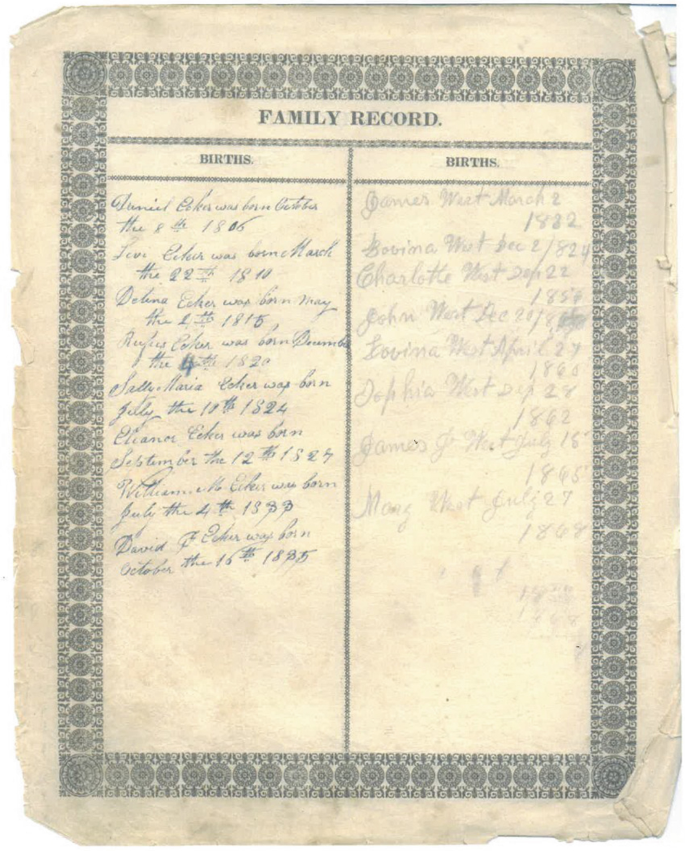 FAMILY RECORD.
BIRTHS.
Daniel Ecker was born October
the 8th 1806
Levi Ecker was born March
the 22th 1810
Delina Ecker was born may
the 2th 1815
Rufus Ecker was born December
the 4th 1820
Sally Maria Ecker was born
July the 10th 1824
Eleanor Ecker was born
September the 12th 1827
William M. Ecker was born
July the 4th
David F Ecker was born
October the 16th
BIRTHS.
James West March 2
1832
Lovina West Dec 2
Charlotte West Sep 22
John West Dec
Lovina West April 27
1860
Sophia West Sep 28
1862
James J West July 15
1865
Mary West July 27
1868